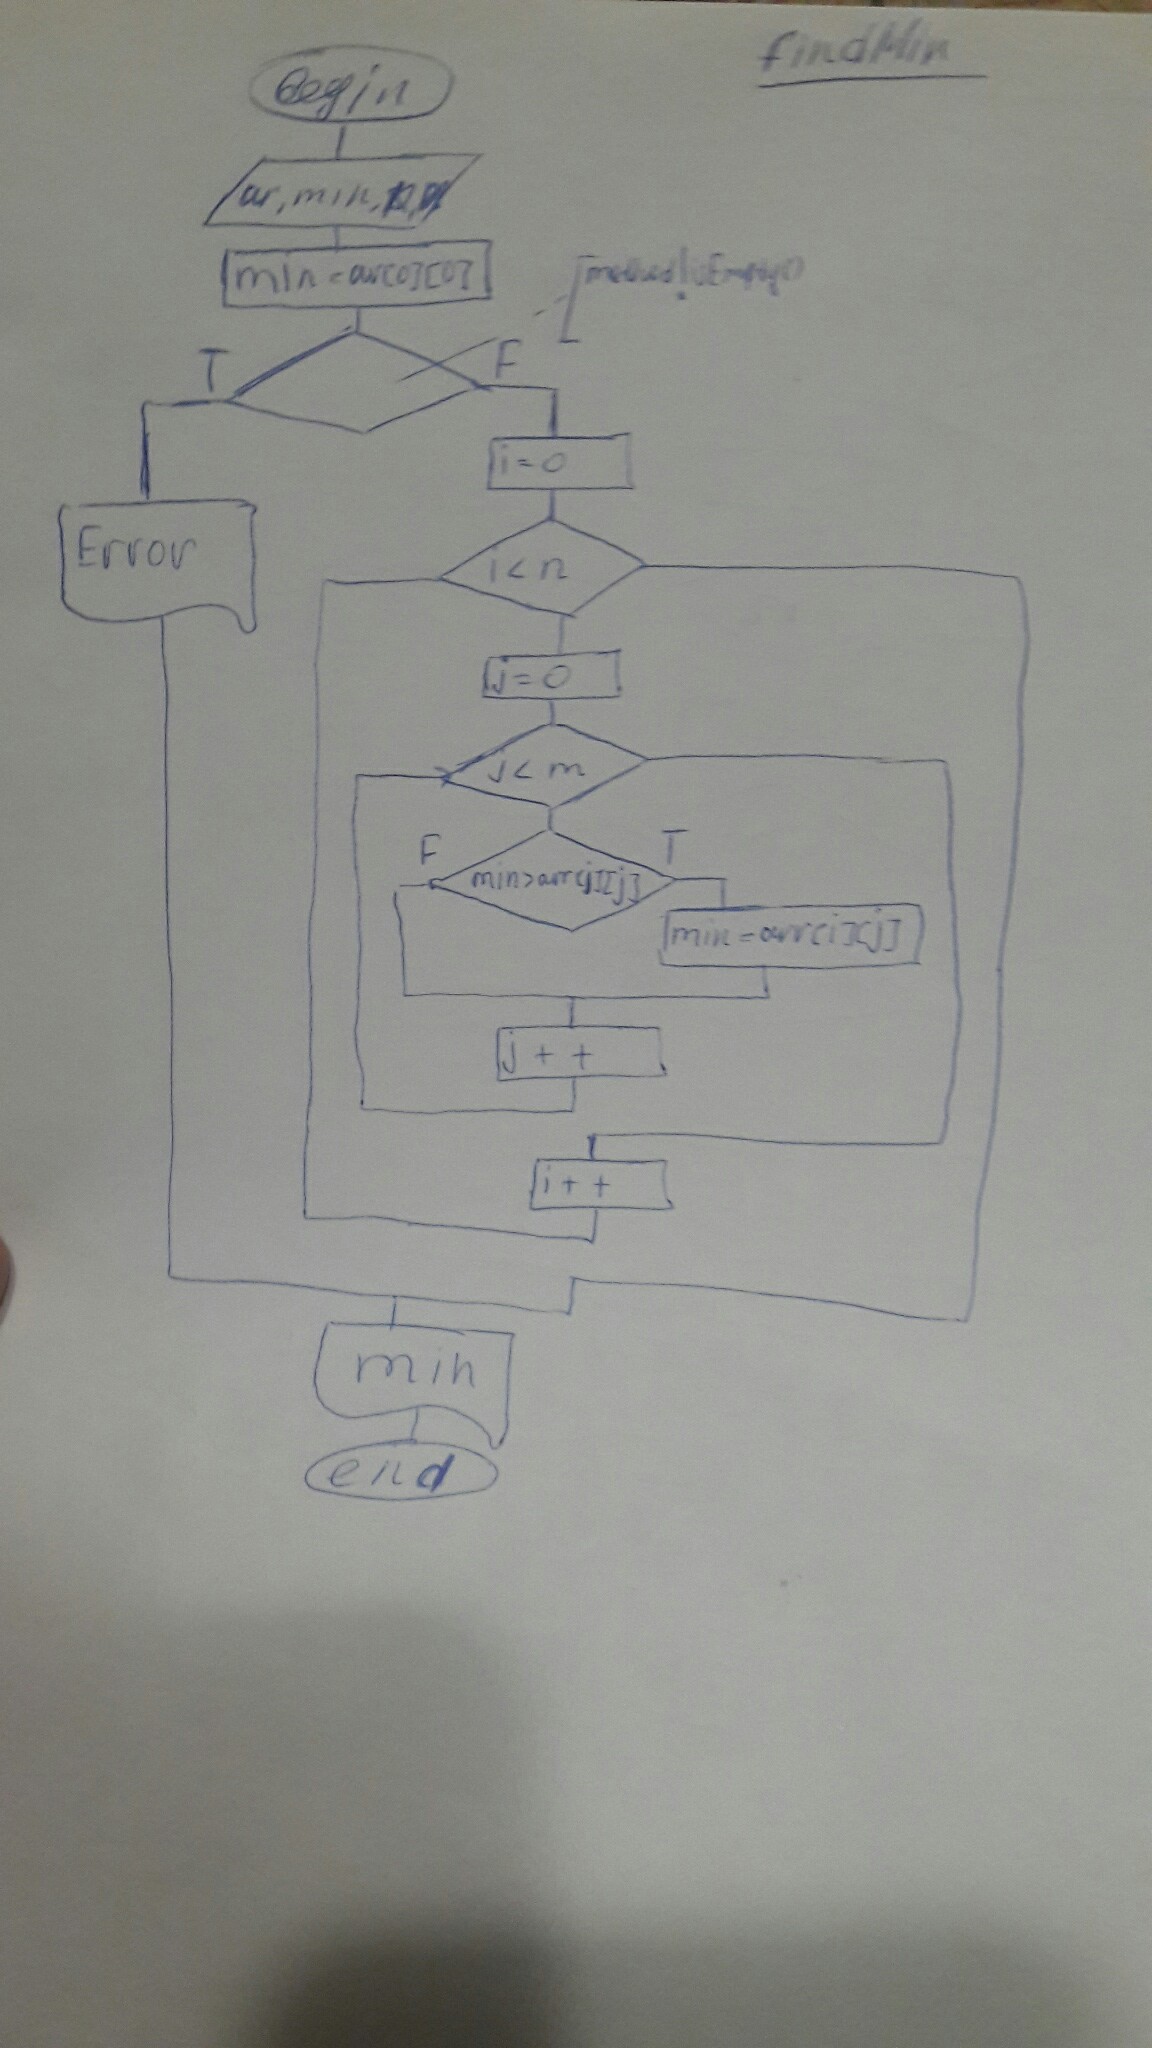 findMin
Begin
ar, min,
min=ar[0][0]
method isEmpty()
T
F
i=0
Error
i<n
j=0
j<m
F
T
min>arr[j][j]
min=arr[i][j]
j++
i++
min
end